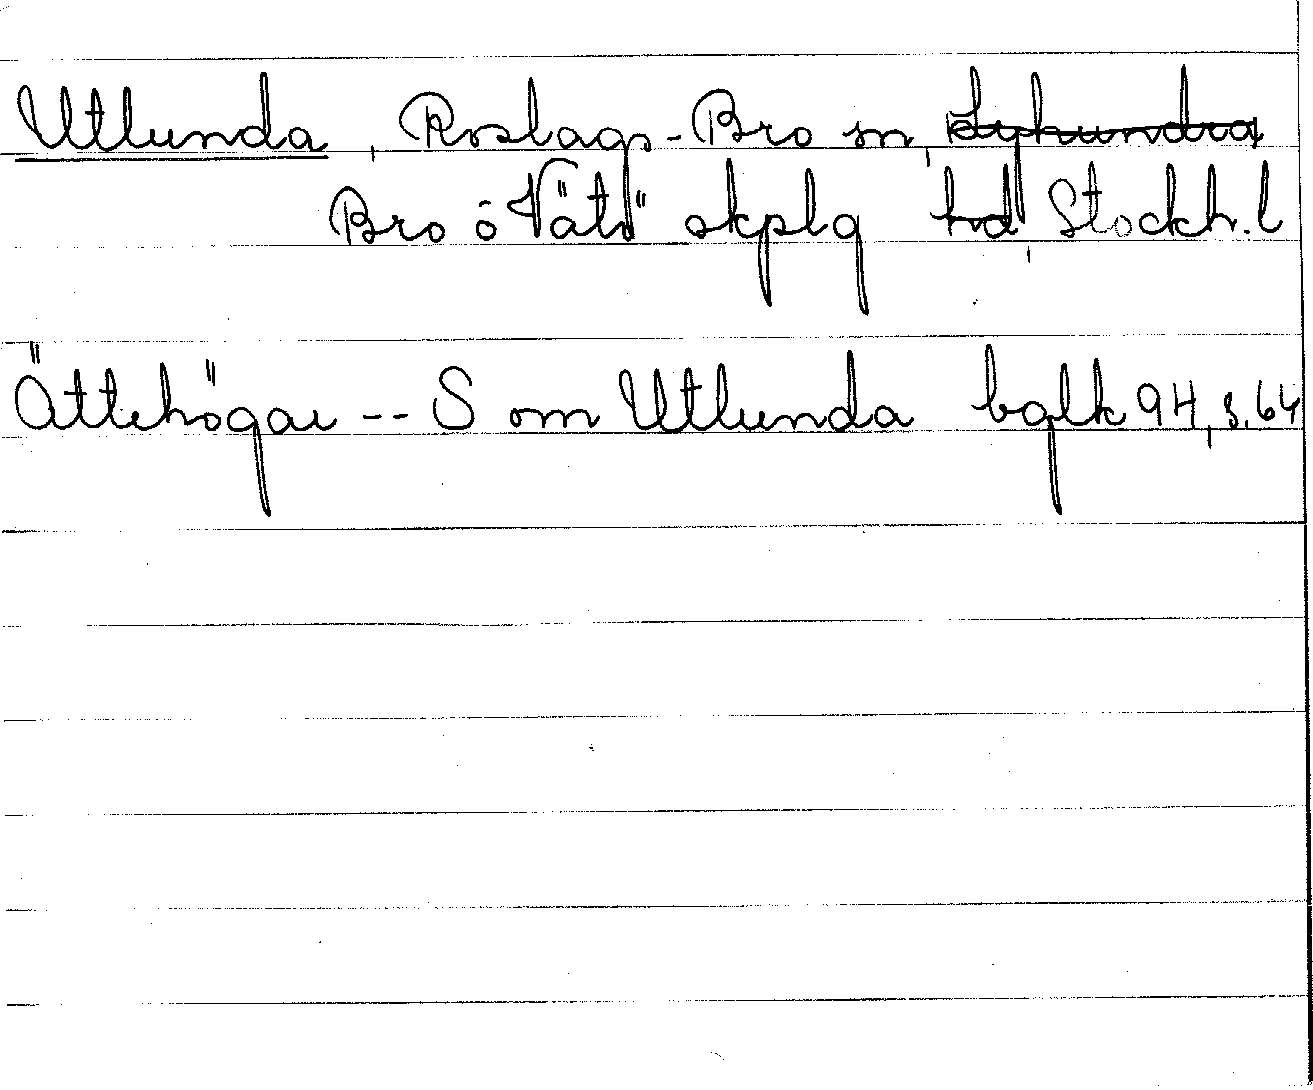 Utlunda, Roslags-Bro sn, Lyhundra
Bro o Vätö skplg hd, Stockh. l
Ättehögar -- S om Utlunda bglk 94, s. 64